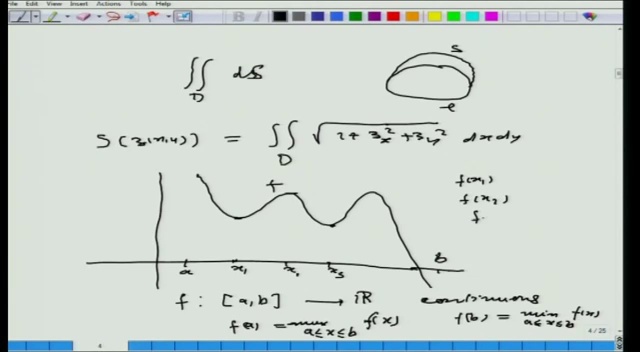 File Edit View Insert Actions Tools Help
∬_D dS
S
e
S(z(x,y)) = ∬_D √(1+z_x²+z_y²) dxdy
f
f(x₁)
f(x₂)
f
a x₁ x₂ x₃ b
f : [a,b] → ℝ continuous
f(a) = max_{a≤x≤b} f(x) f(b) = min_{a≤x≤b} f(x)
4
4 / 25